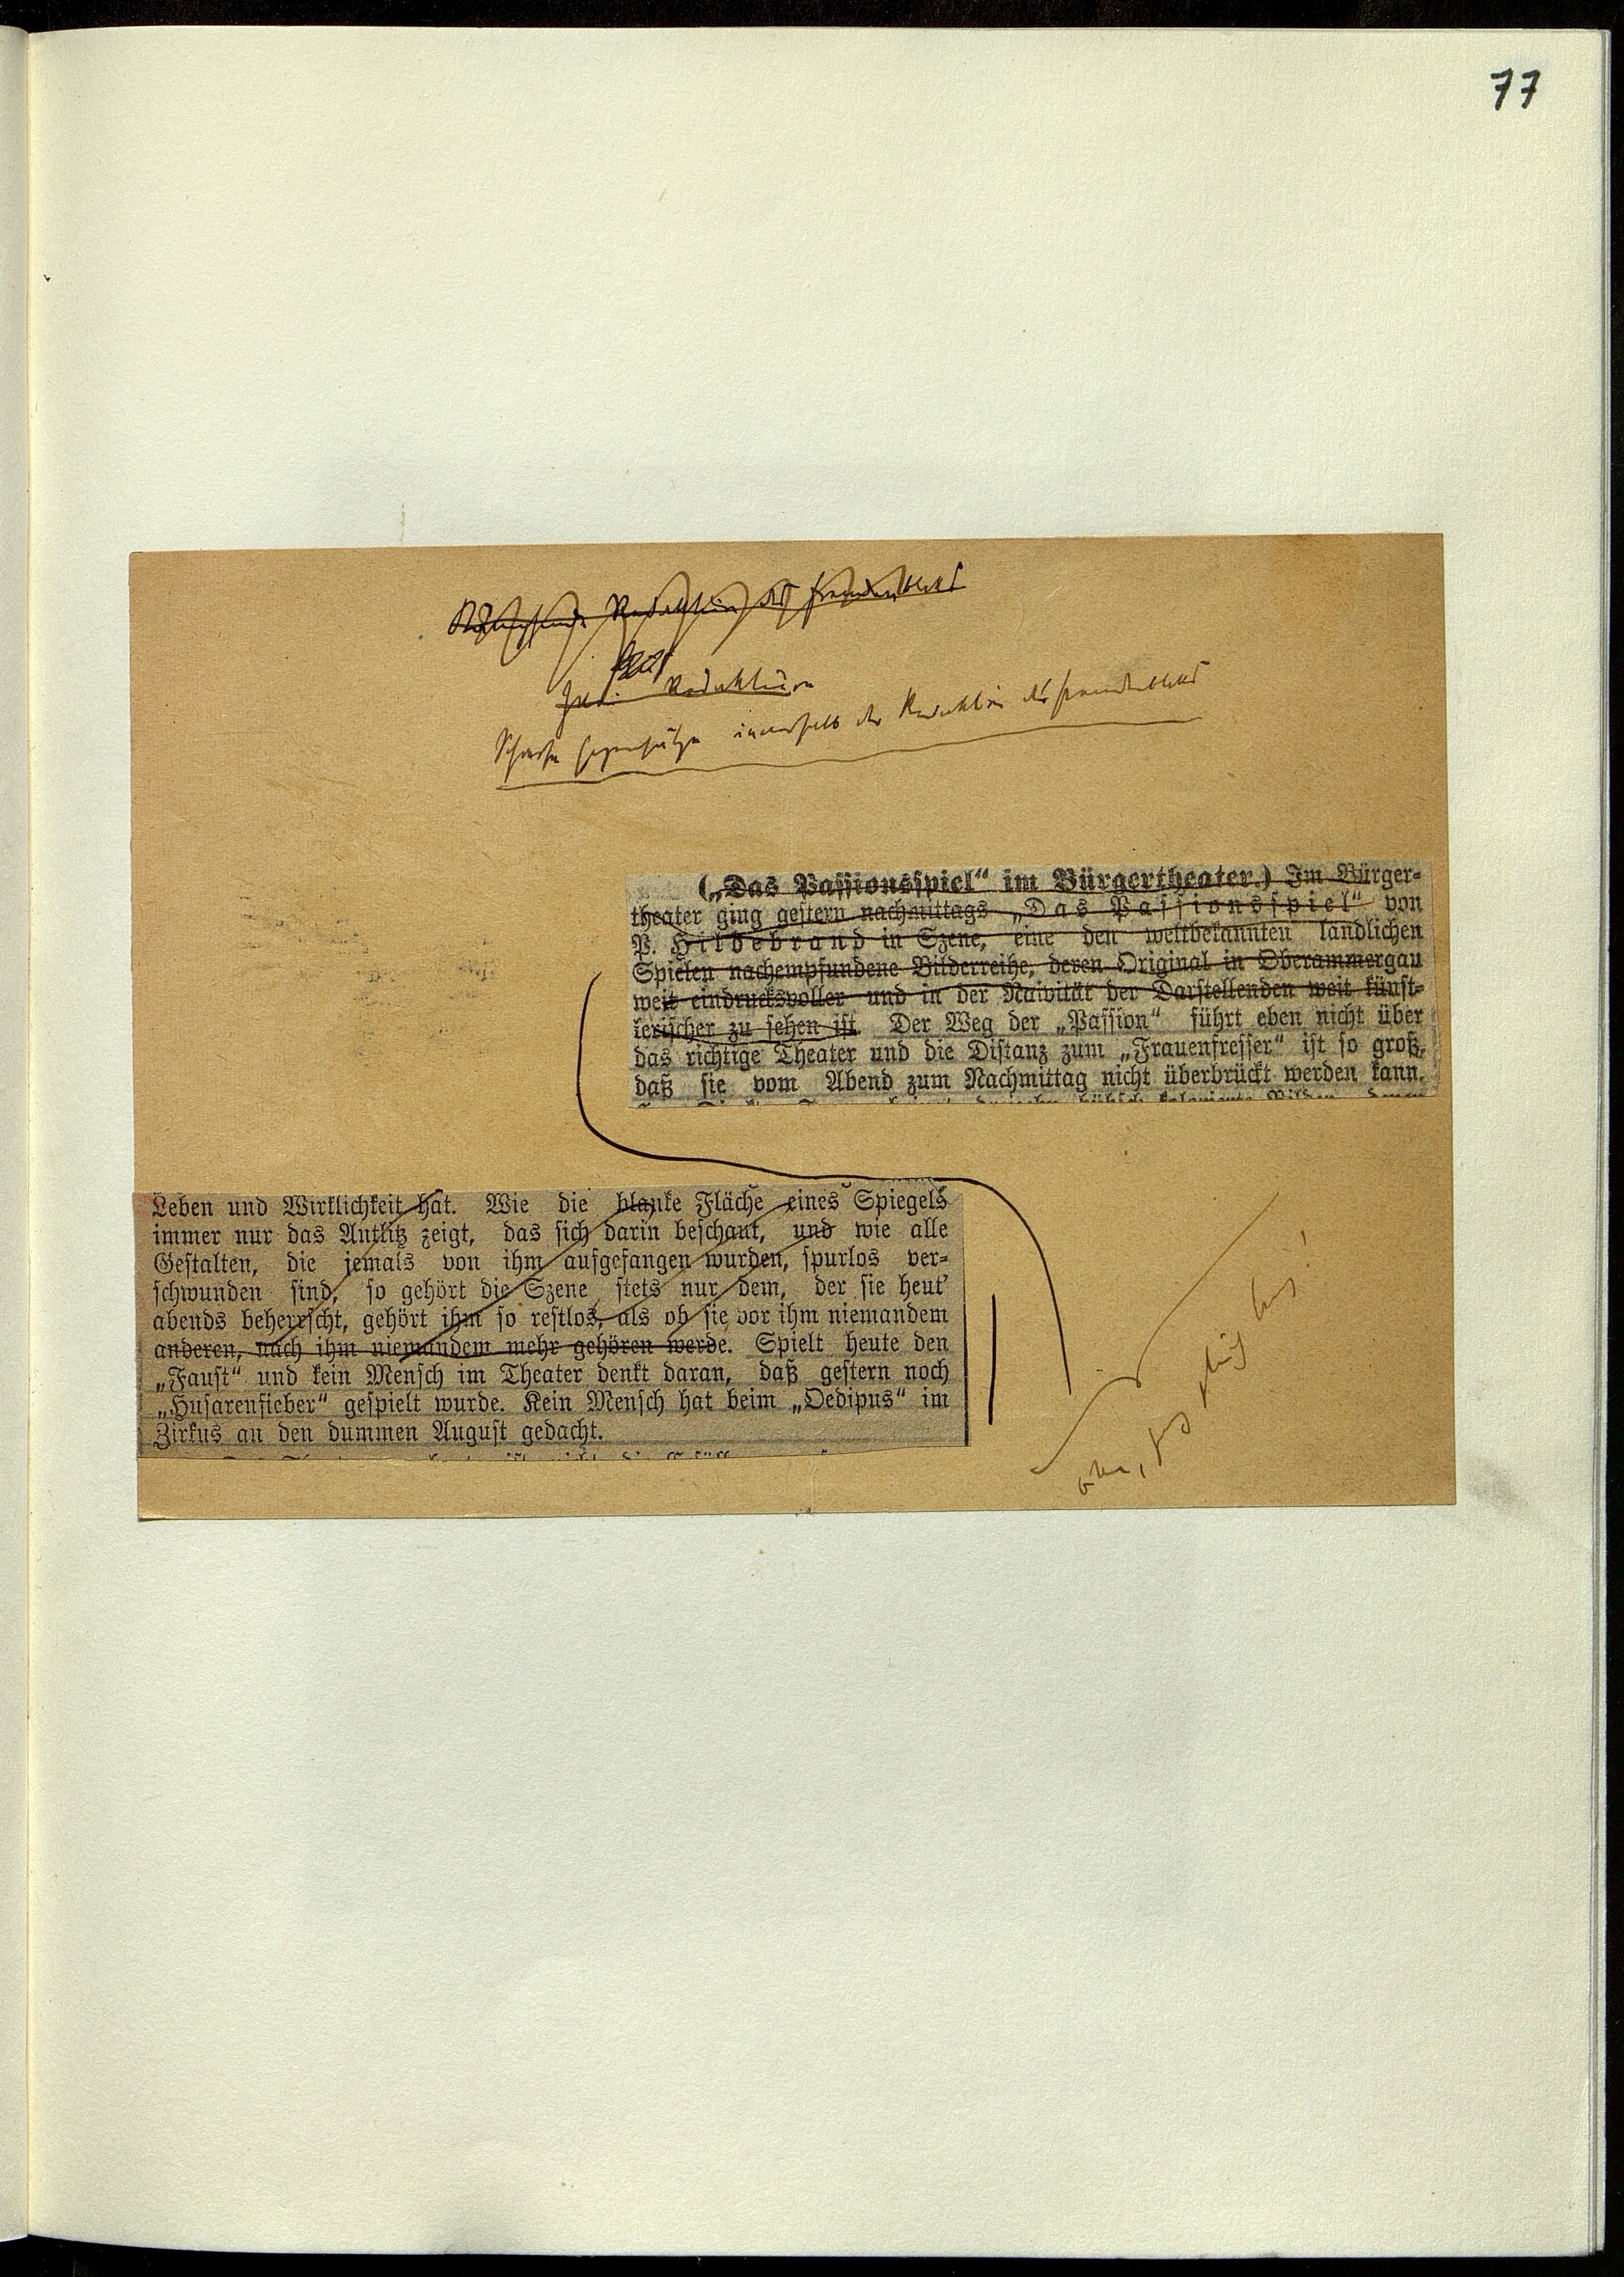 77
Redaktion des Fremdenblatts
Zwei Redaktionen
Scharfe Gegensätze innerhalb der Redaktion des Fremdenblatts
(„Das Passionsspiel“ im Bürgertheater.) Im Bürger-
theater ging gestern nachmittags „Das Passionsspiel“ von
P. Hildebrand in Szene, eine den weltbekannten ländlichen
Spielen nachempfundene Bilderreihe, deren Original in Oberammergau
weit eindrucksvoller und in der Naivität der Darstellenden weit künst-
lerischer zu sehen ist. Der Weg der „Passion“ führt eben nicht über
das richtige Theater und die Distanz zum „Frauenfresser“ ist so groß,
daß sie vom Abend zum Nachmittag nicht überbrückt werden kann.
Leben und Wirklichkeit hat. Wie die blanke Fläche eines Spiegels
immer nur das Antlitz zeigt, das sich darin beschaut, und wie alle
Gestalten, die jemals von ihm aufgefangen wurden, spurlos ver-
schwunden sind, so gehört die Szene stets nur dem, der sie heut’
abends beherrscht, gehört ihm so restlos, als ob sie vor ihm niemandem
anderen, nach ihm niemandem mehr gehören werde. Spielt heute den
„Faust“ und kein Mensch im Theater denkt daran, daß gestern noch
„Husarenfieber“ gespielt wurde. Kein Mensch hat beim „Oedipus“ im
Zirkus an den dummen August gedacht.